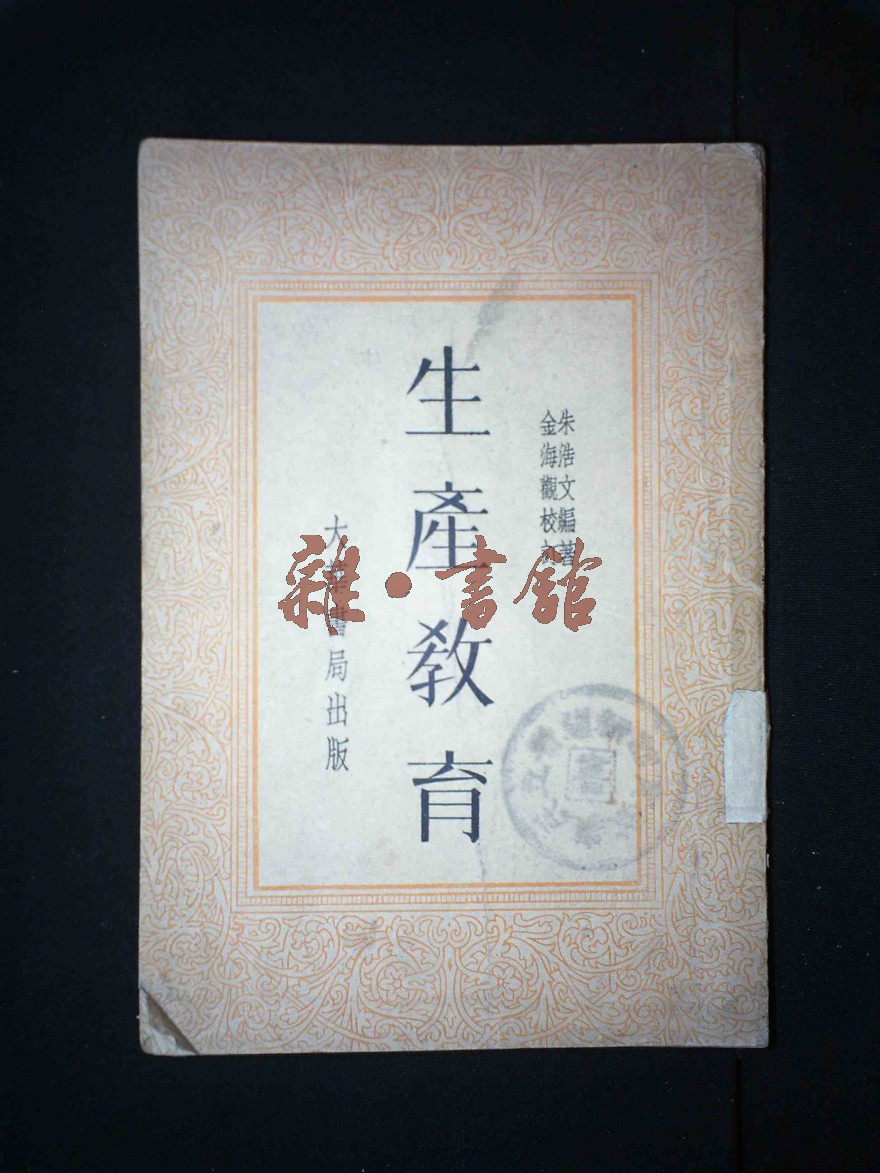 朱浩文編著
金海觀校訂
生產教育
大華書局出版
雜·書館